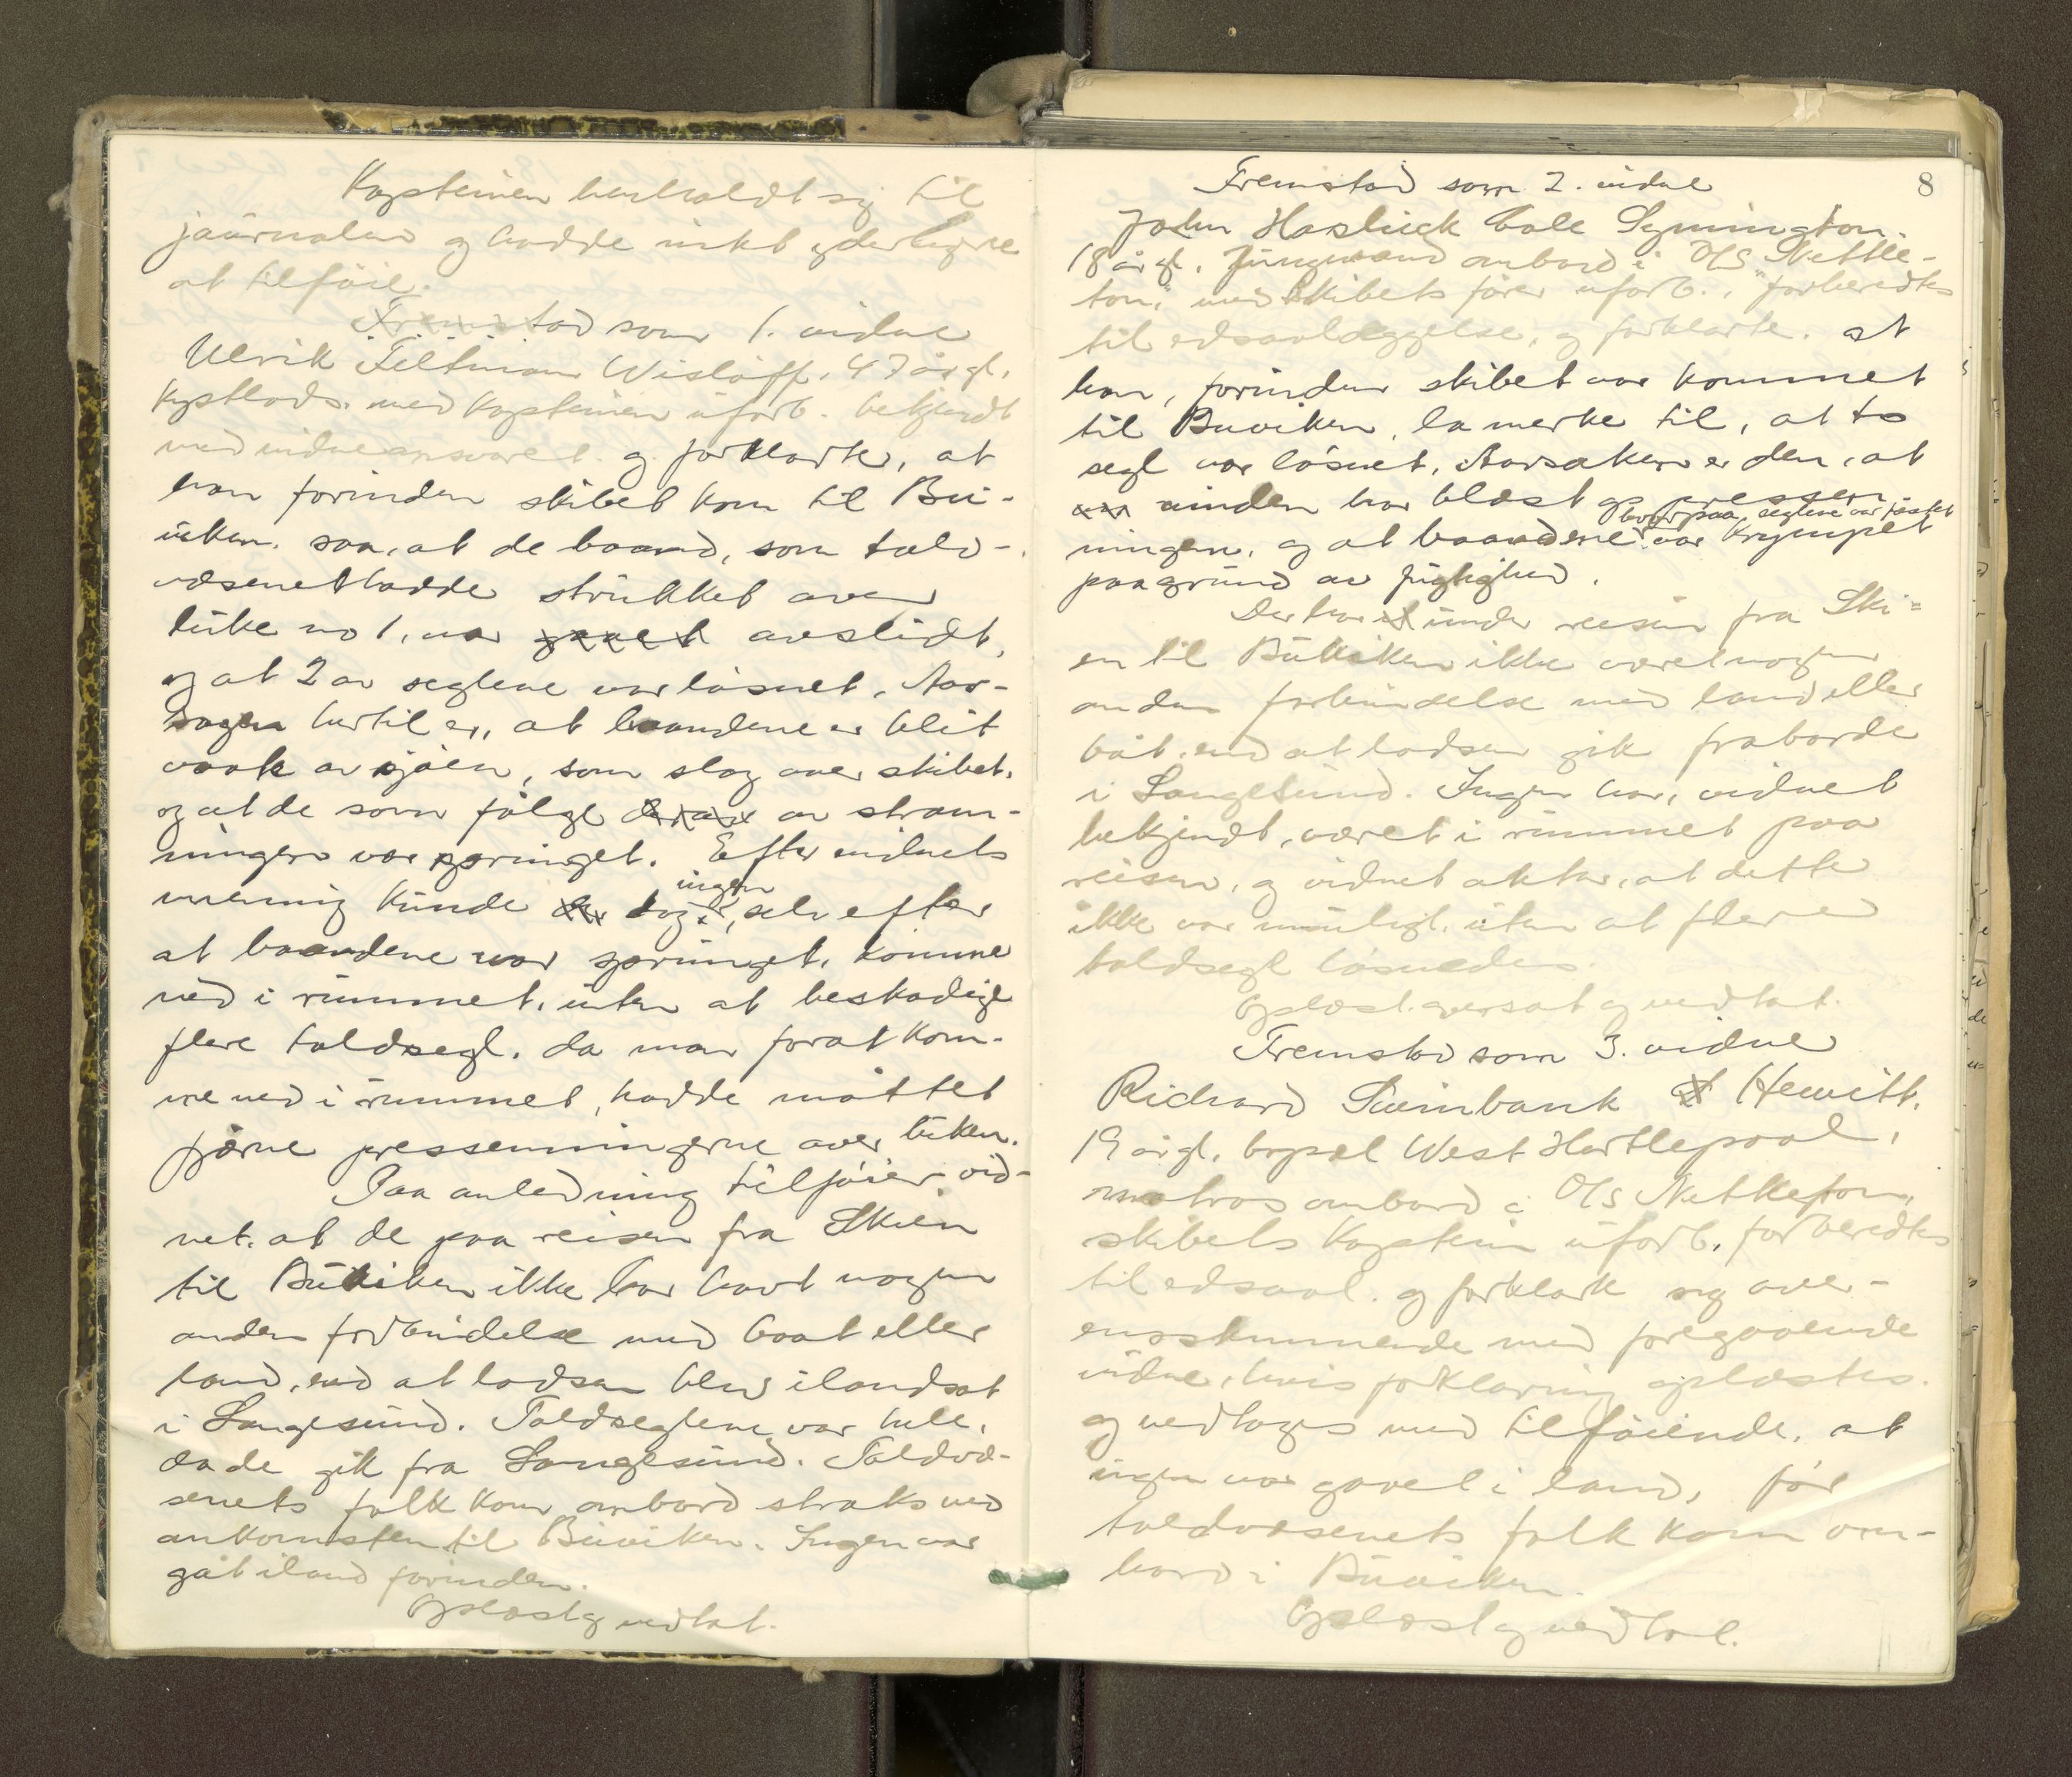 Kapteinen henholdt sig til
journalen og hadde intet yderligere
at tilføie.
Fremstod som 1. vidne
Ulrik Feltman Wisløff, 47 år gl.
Kystlods. med kapteinen uforb. bekjendt
med vidneansvaret og forklarte, at
han forinden skibet kom til Bu-
viken. saa, at de baand, som told-
væsenet hadde strukket over
luke no 1, var avslidt,
og at 2 av seglene var løsnet. Aar-
sagen hertil er, at baandene er blit
vaate av sjøen, som slog over skibet,
og at de som følge av stram-
ningen var sprunget. Efter vidnets
mening kunde dog ingen, selv efter
at baandene var sprunget, komme
ned i rummet, uten at beskadige
flere toldsegl, da man forat kom-
me ned i rummet, hadde måttet
fjerne pressenningerne over luken.
Paa anledning tilføier vid-
net, at de paa reisen fra Skien
til Buviken ikke har havt nogen
anden forbindelse med baat eller
land, end at lodsen blev ilandsat
i Langesund. Toldseglene var hele,
da de gik fra Langesund. Toldvæ-
senets folk kom ombord straks ved
ankomsten til Buviken. Ingen var
gåt iland forinden.
Oplæst og vedtat.
8
Fremstod som 2. vidne
John Hasluck Cole Symington.
18 år gl. Jungmand ombord i D/S Nettle-
ton", med skibets fører uforb., forberedtes
til edsavlæggelse, og forklarte, at
han, forinden skibet var kommet
til Buviken, la merke til, at to
segl var løsnet. Aarsaken er den, at
vinden har blæst op pressen
hvorpaa seglene var fæstet
ningen, og at baandene var krympet
paagrund av fugtighed.
Der har under reisen fra Ski-
en til Buviken ikke været nogen
anden forbindelse med land eller
båt, end at lodsen gik fraborde
i Langesund. Ingen har, vidnet
bekjendt, været i rummet paa
reisen, og vidnet akter, at dette
ikke var muligt, uten at flere
toldsegl løsnedes.
Oplæst oversat og vedtat.
Fremstod som 3. vidne
Richard Swinbank Hewitt,
19 år gl. bopæl West Hartlepool,
matros ombord i D/S Nettleton,
skibets kaptein uforb., forberedtes
til edsavl. og forklarte sig over-
ensstemmende med foregaaende
vidne, hvis forklaring oplæstes.
og vedtoges med tilføiende, at
ingen var gaaet i land, før
toldvæsenets folk kom om-
bord i Buviken.
Oplæst og vedtat.